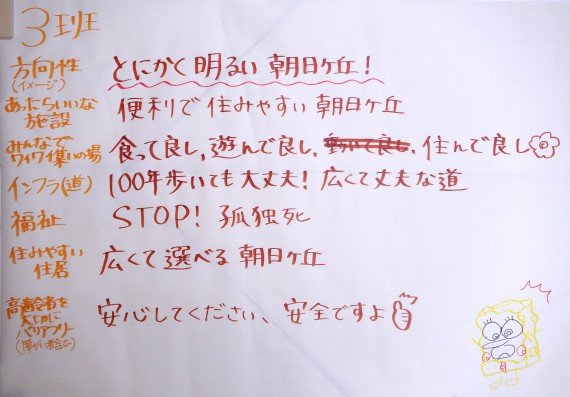 3班
方向性
(イメージ)
とにかく明るい 朝日ヶ丘!
あったらいいな
施設
便利で住みやすい 朝日ヶ丘
みんなで
ワイワイ集いの場
食って良し、遊んで良し、住んで良し
インフラ(道)
100年歩いても大丈夫! 広くて丈夫な道
福祉
STOP! 孤独死
住みやすい
住居
広くて選べる 朝日ヶ丘
高齢者を
大切に
バリアフリー
安心してください、安全ですよ